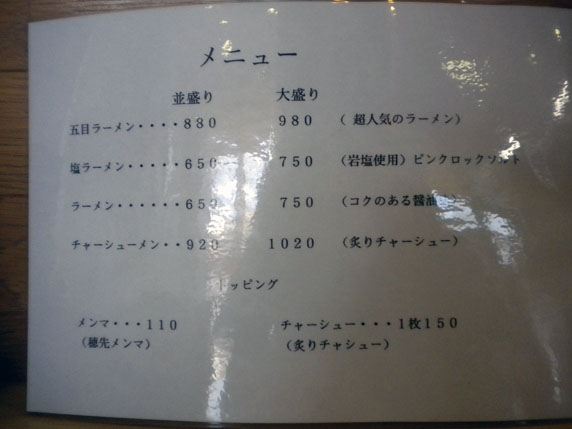 メニュー
並盛り 大盛り
五目ラーメン・・・・880 980 (超人気のラーメン)
塩ラーメン・・・・・650 750 (岩塩使用)ピンクロックソルト
ラーメン・・・・・・650 750 (コクのある醤油
チャーシューメン・・920 1020 (炙りチャーシュー)
トッピング
メンマ・・・110 チャーシュー・・・1枚150
(穂先メンマ) (炙りチャシュー)